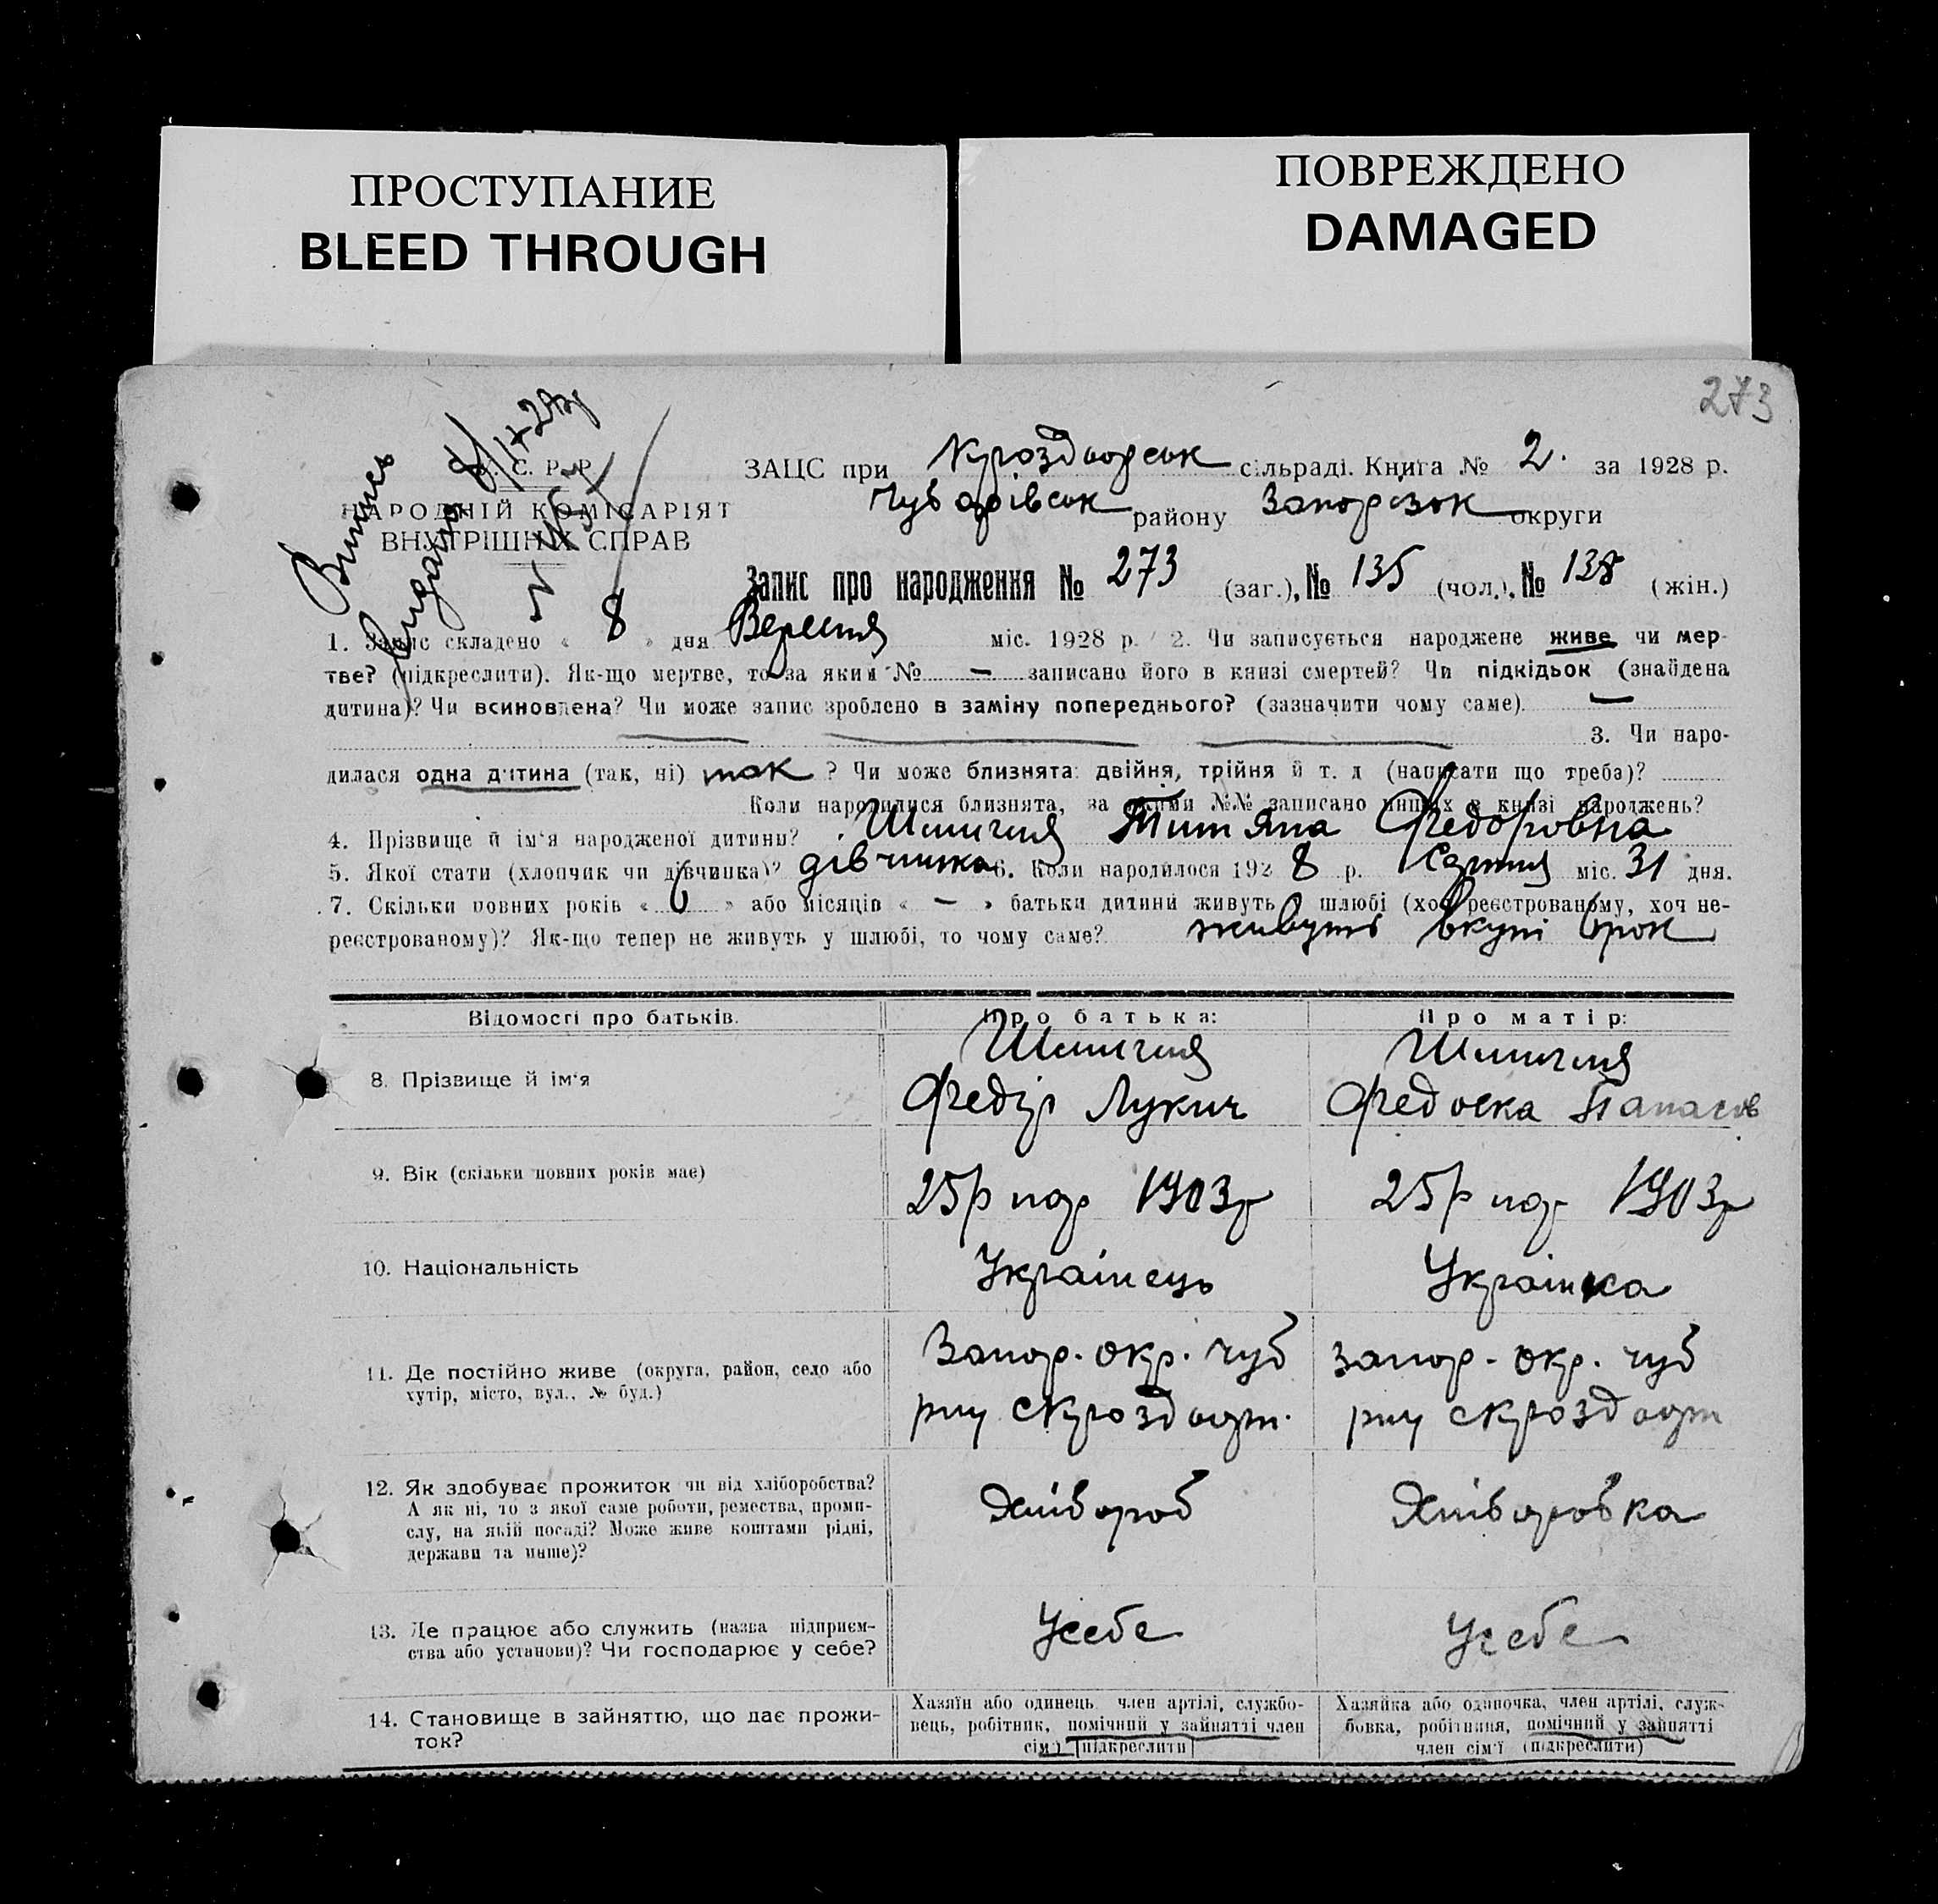 ПРОСТУПАНИЕ
BLEED THROUGH
ПОВРЕЖДЕНО
DAMAGED
273
Випись
Видано
У. С. Р. Р.
НАРОДНІЙ КОМІСАРІЯТ
ВНУТРІШНІХ СПРАВ
ЗАЦС при сільраді. Книга № 2. за 1928 р.
Чубарівськ району Запорізьк округи
Запис про народження № 273 (заг.), № 135 (чол.), № 138 (жін.)
1. Запис складено « 8 » дня Вересня міс. 1928 р. 2. Чи записується народжене живе чи мер-
тве? (підкреслити). Як-що мертве, то за яким № — записано його в книзі смертей? Чи підкідьок (знайдена
дитина)? Чи всиновлена? Чи може запис зроблено в заміну попереднього? (зазначити чому саме). —
3. Чи наро-
дилася одна дитина (так, ні) так ? Чи може близнята: двійня, трійня й т. д (написати що треба)?
Коли народилися близнята, за якими №№ записано инших в книзі народжень?
4. Прізвище й ім'я народженої дитини? Титяна Федоровна
5. Якої стати (хлопчик чи дівчинка)? дівчинка 6. Коли народилося 1928 р. Серпня міс. 31 дня.
7. Скільки повних років « 6 » або місяців « — » батьки дитини живуть у шлюбі (хоч реєстрованому, хоч не-
реєстрованому)? Як-що тепер не живуть у шлюбі, то чому саме? живуть вкупі
Відомості про батьків.
Про батька:
Про матір:
8. Прізвище й ім'я
Федір Лукич
Федоска Панасів
9. Вік (скільки повних років має)
25р нар 1903р
25р нар 1903р
10. Національність
Українець
Українка
11. Де постійно живе (округа, район, село або
хутір, місто, вул., № буд.)
Запор. окр. чуб
запор. окр. чуб
12. Як здобуває прожиток чи від хліборобства?
А як ні, то з якої саме роботи, ремества, проми-
слу, на якій посаді? Може живе коштами рідні,
держави та инше)?
Хлібороб
Хліборобка
13. Де працює або служить (назва підприєм-
ства або установи)? Чи господарює у себе?
Усебе
Усебе
14. Становище в зайняттю, що дає прожи-
ток?
Хазяїн або одинець член артілі, службо-
вець, робітник, помічний у зайнятті член
сім'ї (підкреслити)
Хазяйка або одиночка, член артілі, служ-
бовка, робітниця, помічний у зайнятті
член сім'ї (підкреслити)